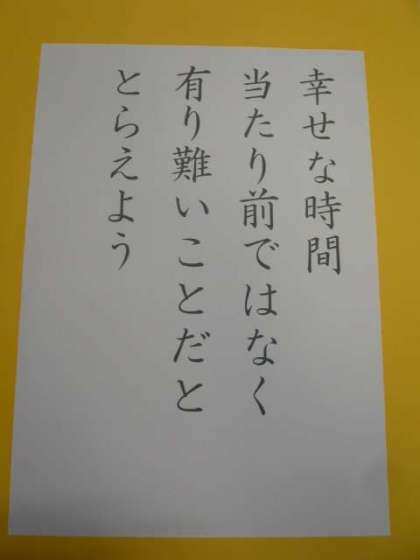 幸せな時間
当たり前ではなく
有り難いことだと
とらえよう